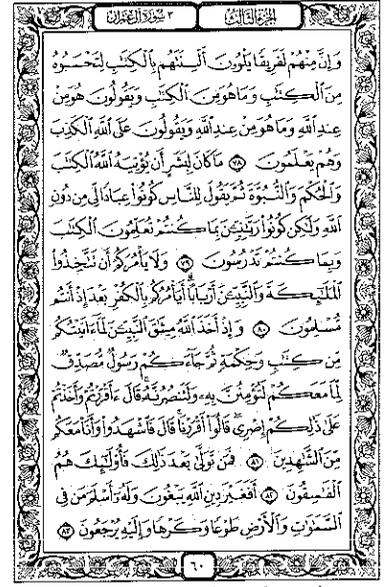 الجزء الثالث ٣ سورة آل عمران
وَإِنَّ مِنْهُمْ لَفَرِيقًا يَلْوُونَ أَلْسِنَتَهُم بِالْكِتَابِ لِتَحْسَبُوهُ
مِنَ الْكِتَابِ وَمَا هُوَ مِنَ الْكِتَابِ وَيَقُولُونَ هُوَ مِنْ
عِندِ اللَّهِ وَمَا هُوَ مِنْ عِندِ اللَّهِ وَيَقُولُونَ عَلَى اللَّهِ الْكَذِبَ
وَهُمْ يَعْلَمُونَ ٧٨ مَا كَانَ لِبَشَرٍ أَن يُؤْتِيَهُ اللَّهُ الْكِتَابَ
وَالْحُكْمَ وَالنُّبُوَّةَ ثُمَّ يَقُولَ لِلنَّاسِ كُونُوا عِبَادًا لِّي مِن دُونِ
اللَّهِ وَلَٰكِن كُونُوا رَبَّانِيِّينَ بِمَا كُنتُمْ تُعَلِّمُونَ الْكِتَابَ
وَبِمَا كُنتُمْ تَدْرُسُونَ ٧٩ وَلَا يَأْمُرَكُمْ أَن تَتَّخِذُوا
الْمَلَائِكَةَ وَالنَّبِيِّينَ أَرْبَابًا أَيَأْمُرُكُم بِالْكُفْرِ بَعْدَ إِذْ أَنتُم
مُّسْلِمُونَ ٨٠ وَإِذْ أَخَذَ اللَّهُ مِيثَاقَ النَّبِيِّينَ لَمَا آتَيْتُكُم
مِّن كِتَابٍ وَحِكْمَةٍ ثُمَّ جَاءَكُمْ رَسُولٌ مُّصَدِّقٌ
لِّمَا مَعَكُمْ لَتُؤْمِنُنَّ بِهِ وَلَتَنصُرُنَّهُ قَالَ ءَأَقْرَرْتُمْ وَأَخَذْتُمْ
عَلَىٰ ذَٰلِكُمْ إِصْرِي قَالُوا أَقْرَرْنَا قَالَ فَاشْهَدُوا وَأَنَا مَعَكُم
مِّنَ الشَّاهِدِينَ ٨١ فَمَن تَوَلَّىٰ بَعْدَ ذَٰلِكَ فَأُولَٰئِكَ هُمُ
الْفَاسِقُونَ ٨٢ أَفَغَيْرَ دِينِ اللَّهِ يَبْغُونَ وَلَهُ أَسْلَمَ مَن فِي
السَّمَاوَاتِ وَالْأَرْضِ طَوْعًا وَكَرْهًا وَإِلَيْهِ يُرْجَعُونَ ٨٣
٦٠